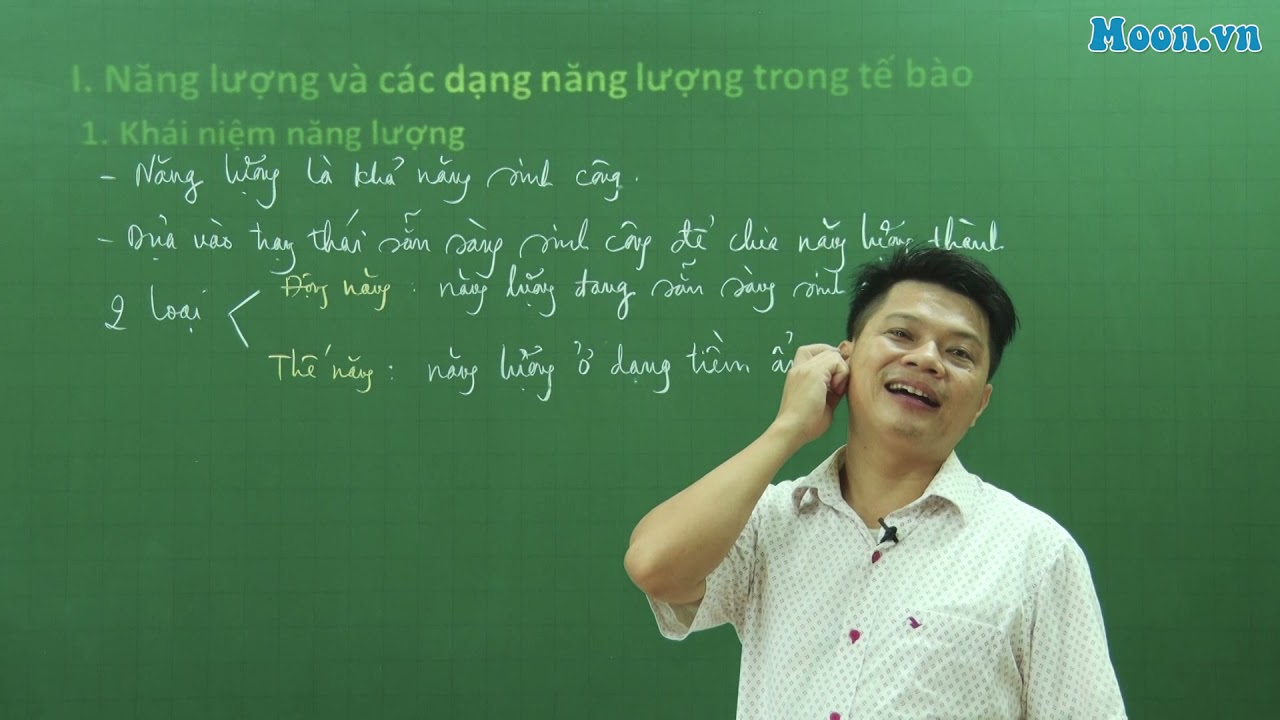 Moon.vn
I. Năng lượng và các dạng năng lượng trong tế bào
1. Khái niệm năng lượng
- Năng lượng là khả năng sinh công.
- Dựa vào trạng thái sẵn sàng sinh công để chia năng lượng thành
2 loại
Động năng : năng lượng đang sẵn sàng sinh
Thế năng : năng lượng ở dạng tiềm ẩn